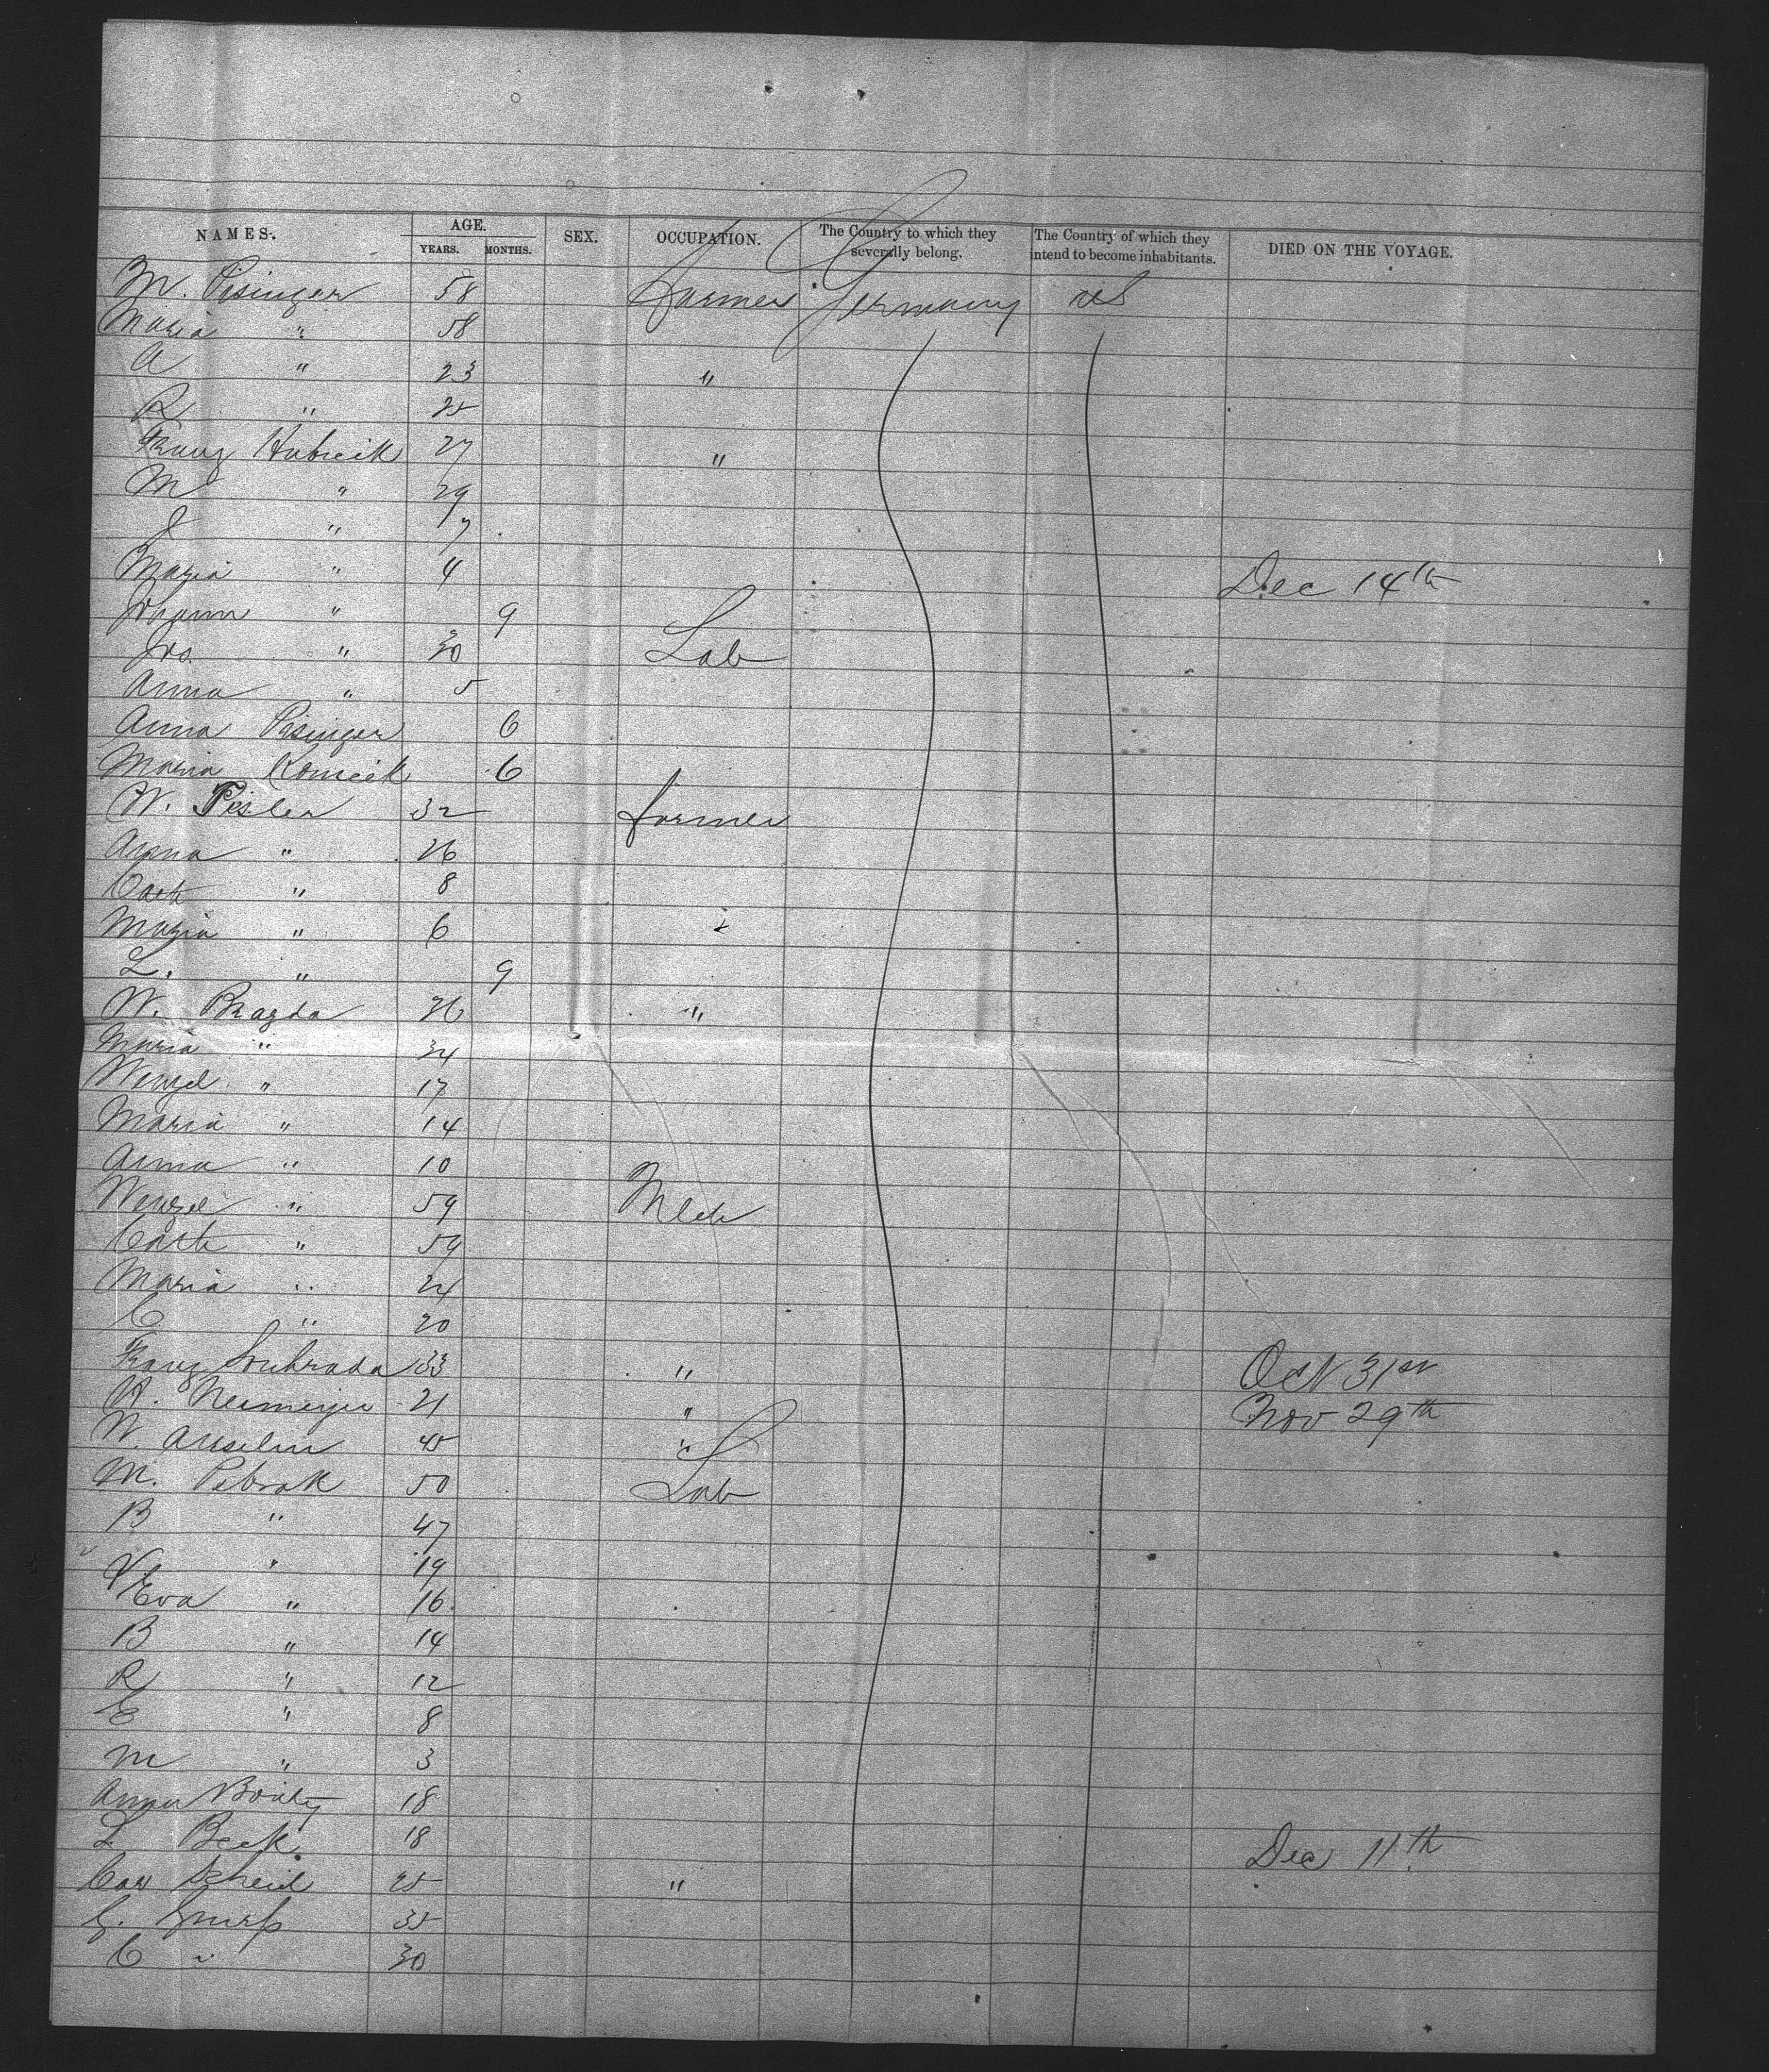 NAMES. AGE. YEARS. MONTHS. SEX. OCCUPATION. The Country to which they severally belong. The Country of which they intend to become inhabitants. DIED ON THE VOYAGE.
Pisinger 58 Farmer Germany US
Maria " 58
A " 23 "
R " 25
Franz Hubicik 27 "
M " 29
J " 7
Maria " 4 Dec 14th
Johann " 9
Jos. " 30 Lab
Anna " 5
Anna Pisinger 6
Maria Komcik 6
W. Pisler 32 farmer
Anna " 26
Cath " 8
Maria " 6 "
L. " 9
W. Bragda 36 "
Maria " 34
Wenzel " 17
Maria " 14
Anna " 10
Wenzel " 59
Cath " 59
Maria " 24
C " 20
Franz Souhrada 33 " Oct 31st
Neumeyer 21 " Nov 29th
W. Anselm 45 "
M. Pebrak 50 Lab
B " 47
" 19
Eva " 16
B " 14
R " 12
E " 8
M " 3
Anna 18
L Beck 18 Dec 11th
Scheid 25 "
G. 35
C " 30